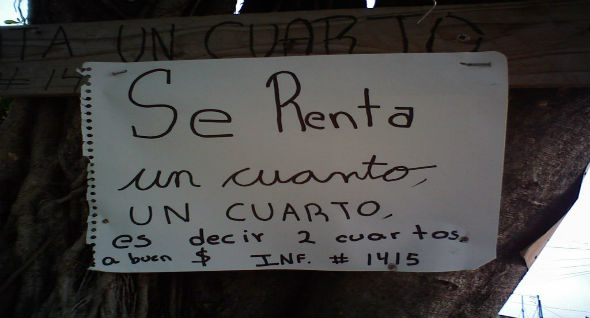 TA UN CUARTO
# 14
Se Renta
un cuanto,
UN CUARTO,
es decir 2 cuartos.
a buen $ INF. # 1415